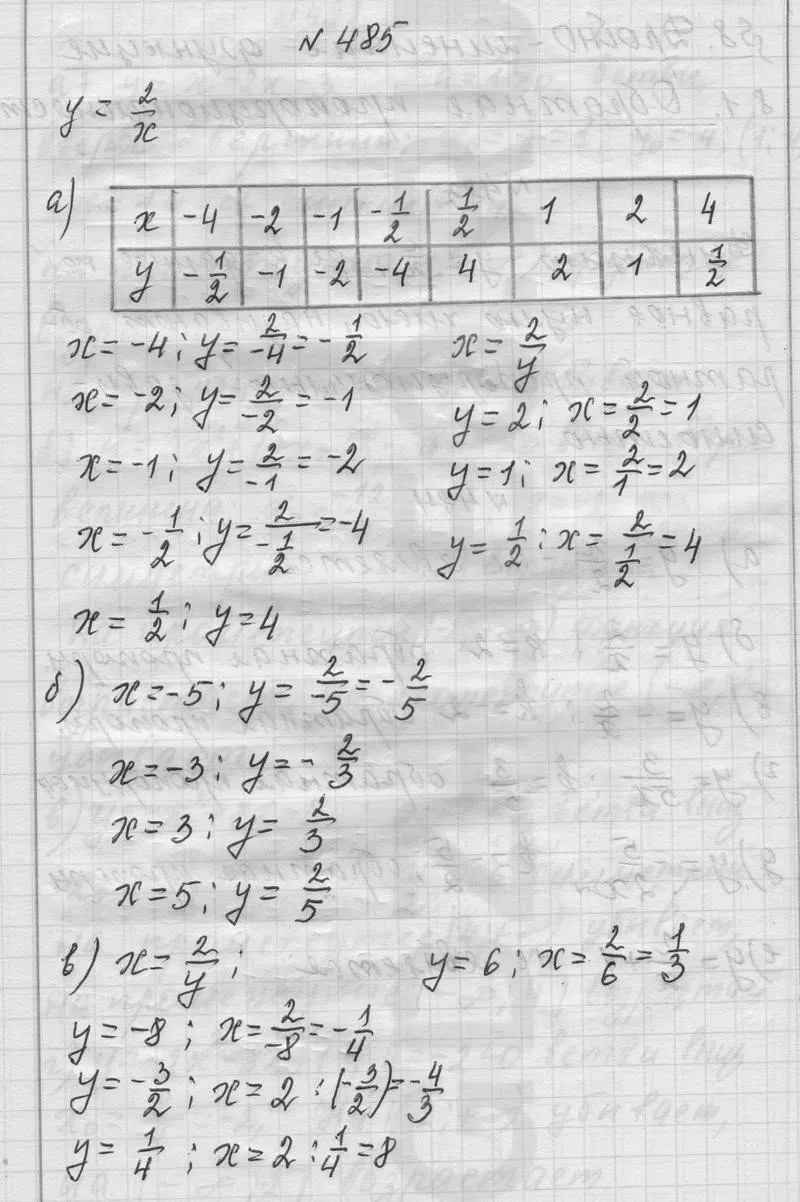 N 485
y = 2/x
а)
x | -4 | -2 | -1 | -1/2 | 1/2 | 1 | 2 | 4
y | -1/2 | -1 | -2 | -4 | 4 | 2 | 1 | 1/2
x = -4; y = 2/-4 = -1/2
x = -2; y = 2/-2 = -1
x = -1; y = 2/-1 = -2
x = -1/2; y = 2/-1/2 = -4
x = 1/2; y = 4
x = 2/y
y = 2; x = 2/2 = 1
y = 1; x = 2/1 = 2
y = 1/2; x = 2/1/2 = 4
б) x = -5; y = 2/-5 = -2/5
x = -3; y = -2/3
x = 3; y = 2/3
x = 5; y = 2/5
в) x = 2/y;
y = -8; x = 2/-8 = -1/4
y = -3/2; x = 2 : (-3/2) = -4/3
y = 1/4; x = 2 : 1/4 = 8
y = 6; x = 2/6 = 1/3